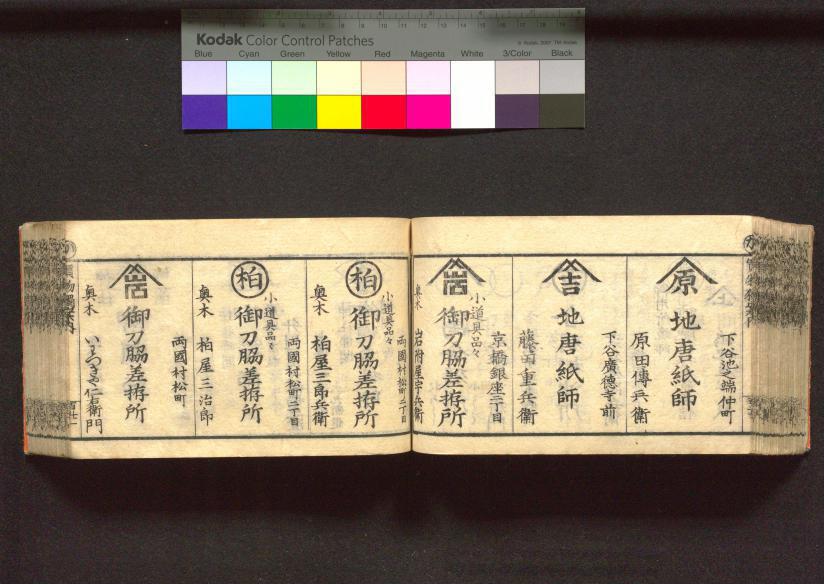 Kodak Color Control Patches
© Kodak, 2007 TM: Kodak
Blue Cyan Green Yellow Red Magenta White 3/Color Black
下谷池之端仲町
原 地唐紙師
原田傳兵衛
下谷廣徳寺前
吉 地唐紙師
藤田重兵衛
京橋銀座二丁目
小道具品々
御刀脇差拵所
奥木 岩附屋宇兵衛
両國村松町二丁目
小道具品々
柏 御刀脇差拵所
奥木 柏屋三郎兵衛
両國村松町二丁目
小道具品々
柏 御刀脇差拵所
奥木 柏屋三治郎
両國村松町
御刀脇差拵所
奥木 いわつきや仁右衛門